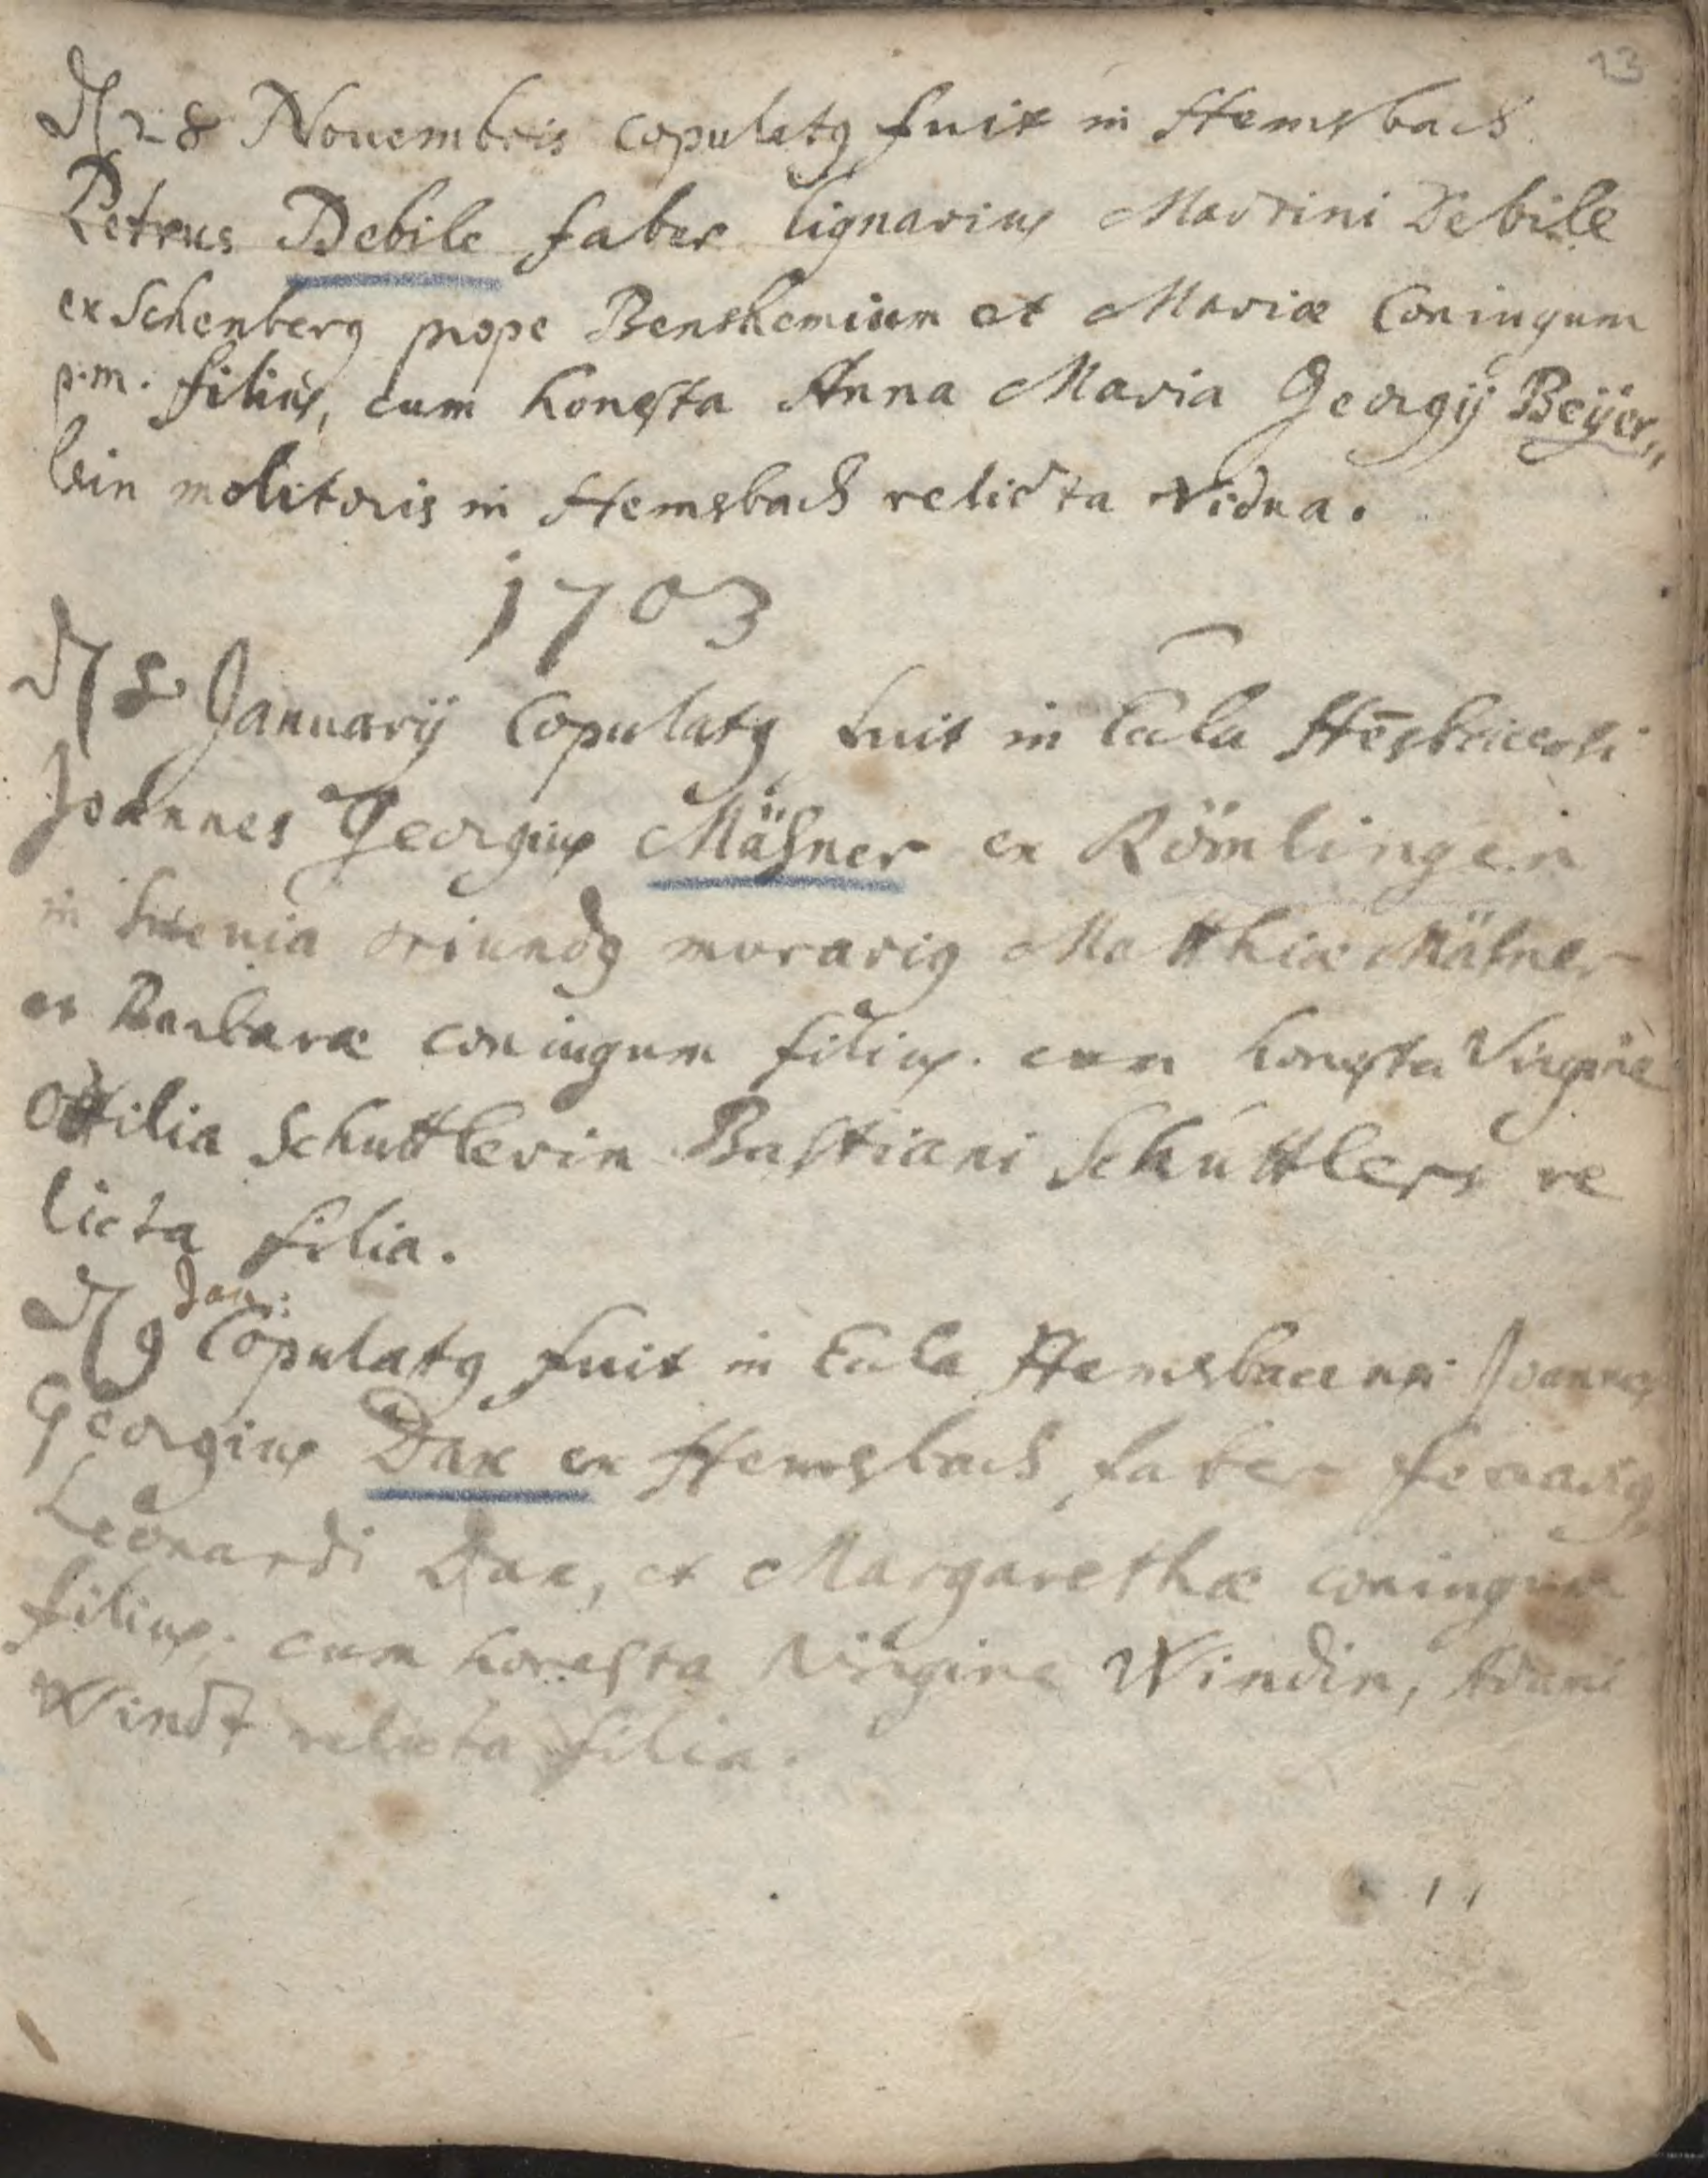 13
D 28 Novembris copulatg fuit in Hemsbach
Petrus Debile faber lignarius Martini Debile
ex Schenberg prope Benshemium et Mariæ Coniugum
p.m. filius, cum honesta Anna Maria Georgij Beÿer„
lein molitoris in Hemsbach relicta vidua.
1703
D 8 Januarij Copulatg fuit in Eccla
Joannes Georgius Mäßner ex Römlingen
in oriundg murarig Matthiæ Mäßner
et Barbaræ coniugum filius. cum honesta Virgine
Ottilia Schuttlerin Bastiani Schuttlers re
licta filia.
Jan:
D 9 Copulatg fuit in Eccla Hemsbacensi Joannes
Georgius Dax ex Hemsbach faber ferrarig
Leonardi Dax, et Margarethæ coniugum
filius; cum honesta Virgine Windin, Adami
Windt relicta filia.